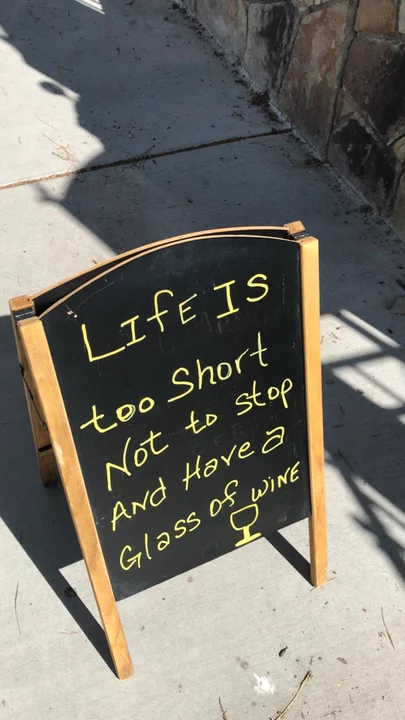 LIfE IS
too Short
Not to stop
And Have a
Glass of WINE